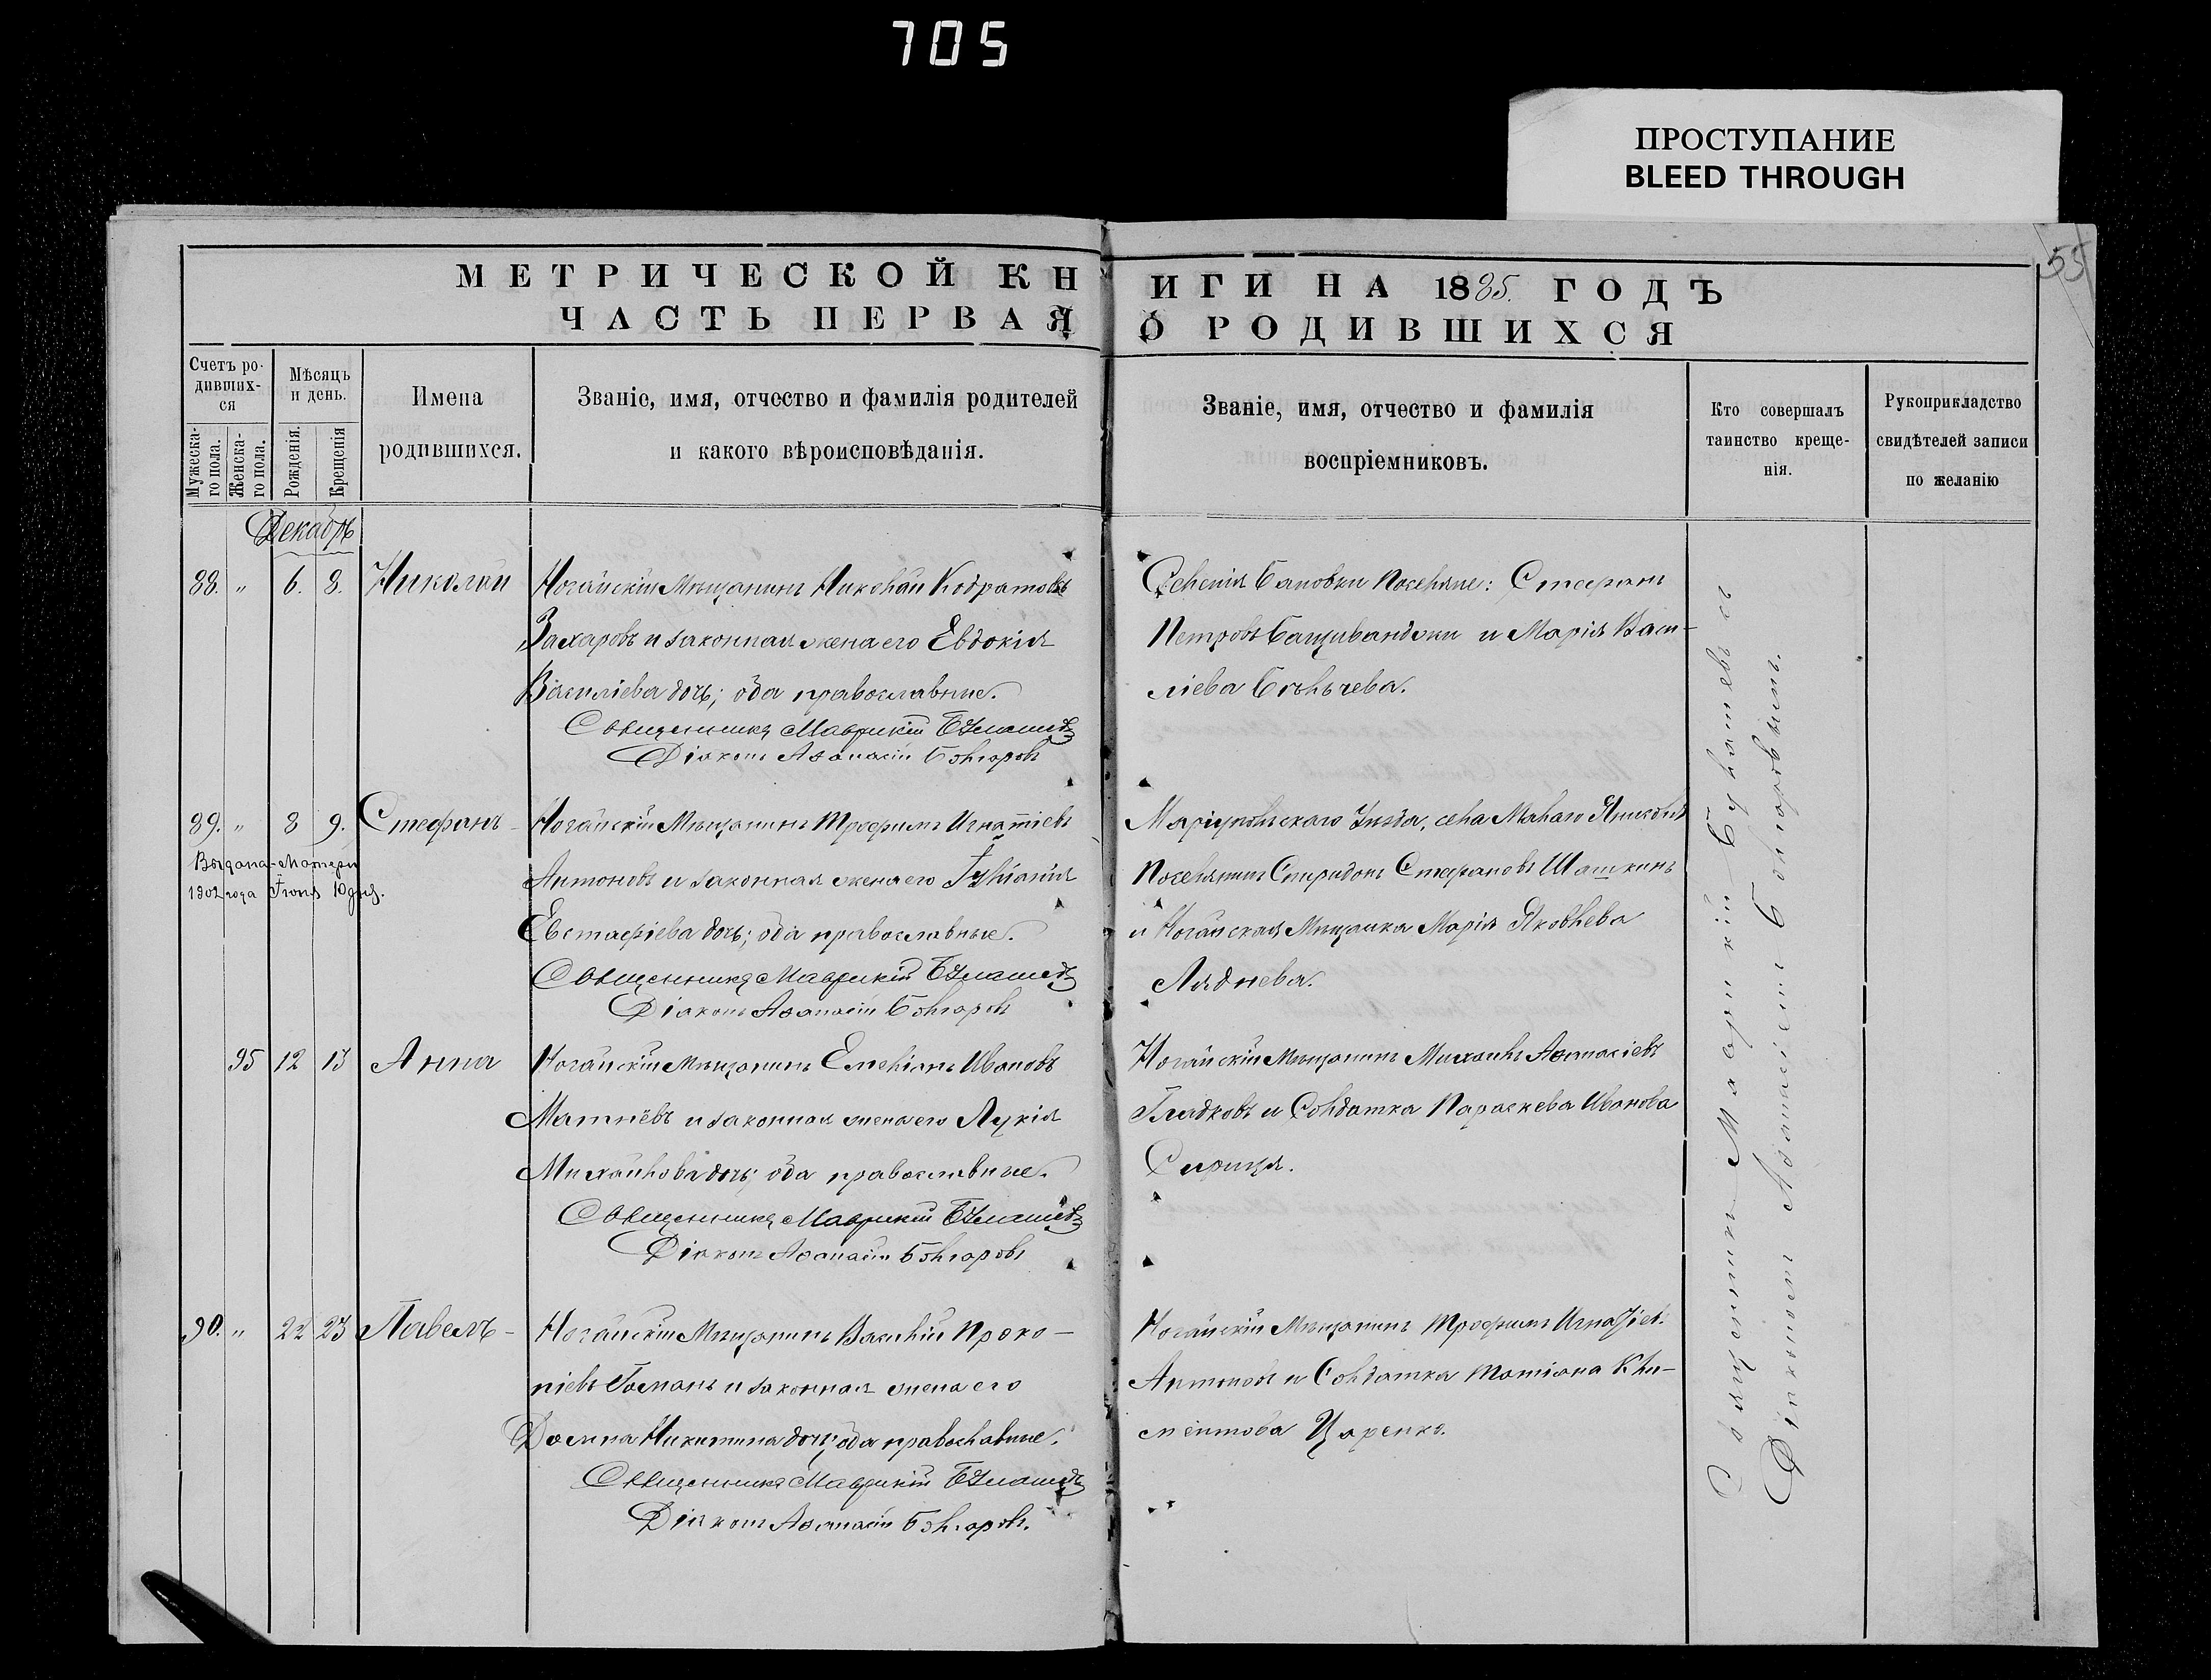 705
ПРОСТУПАНИЕ
BLEED THROUGH
55
МЕТРИЧЕСКОЙ КНИГИ НА 1885. ГОДЪ
ЧАСТЬ ПЕРВАЯ О РОДИВШИХСЯ
Счетъ ро-
дивших-
ся
Мужеска-
го пола.
Женска-
го пола.
Мѣсяцъ
и день.
Рожденія.
Крещенія
Имена
родившихся.
Званіе, имя, отчество и фамилія родителей
и какого вѣроисповѣданія.
Званіе, имя, отчество и фамилія
воспріемниковъ.
Кто совершалъ
таинство креще-
нія.
Рукоприкладство
свидѣтелей записи
по желанію
Декабрь
88. " 6. 8. Николай
Ногайскій Мѣщанинъ Николай Кодратовъ
Захаровъ и законная жена его Евдокія
Василіева дочь; оба православные.
Священникъ Маврикій
Діаконъ Аѳанасій Болгаровъ
Селенія Бановки Поселяне: Стефанъ
Петровъ и Марія Васи-
ліева
89. " 8 9. Стефанъ
Выдана Матери
1902 года Іюня 10 дня.
Ногайскій Мѣщанинъ Трофимъ Игнатіевъ
Антоновъ и законная жена его Іуліанія
Евстафіева дочь; оба православные.
Священникъ Маврикій
Діаконъ Аѳанасій Болгаровъ
Маріупольскаго Уѣзда, села Малаго Янисоля
Поселянинъ Спиридонъ Стефановъ Шашкинъ
и Ногайская Мѣщанка Марія Яковлева
Ляднева.
95 12 13 Анна
Ногайскій Мѣщанинъ Емеліанъ Ивановъ
Матнѣвъ и законная жена его Лукія
Михайлова дочь; оба православные.
Священникъ Маврикій
Діаконъ Аѳанасій Болгаровъ
Ногайскій Мѣщанинъ Михаилъ Аѳанасіевъ
Гладковъ и Солдатка Параскева Иванова
Сирица.
90. " 22 23 Павелъ
Ногайскій Мѣщанинъ Василій Проко-
піевъ Госманъ и законная жена его
Домна Никитина дочь; оба православные.
Священникъ Маврикій
Діаконъ Аѳанасій Болгаровъ.
Ногайскій Мѣщанинъ Трофимъ Игнатіев.
Антоновъ и Солдатка Татіана Кли-
ментова Царенко.
Священникъ Маврикій съ
Діакономъ Аѳанасіемъ Болгаровымъ.